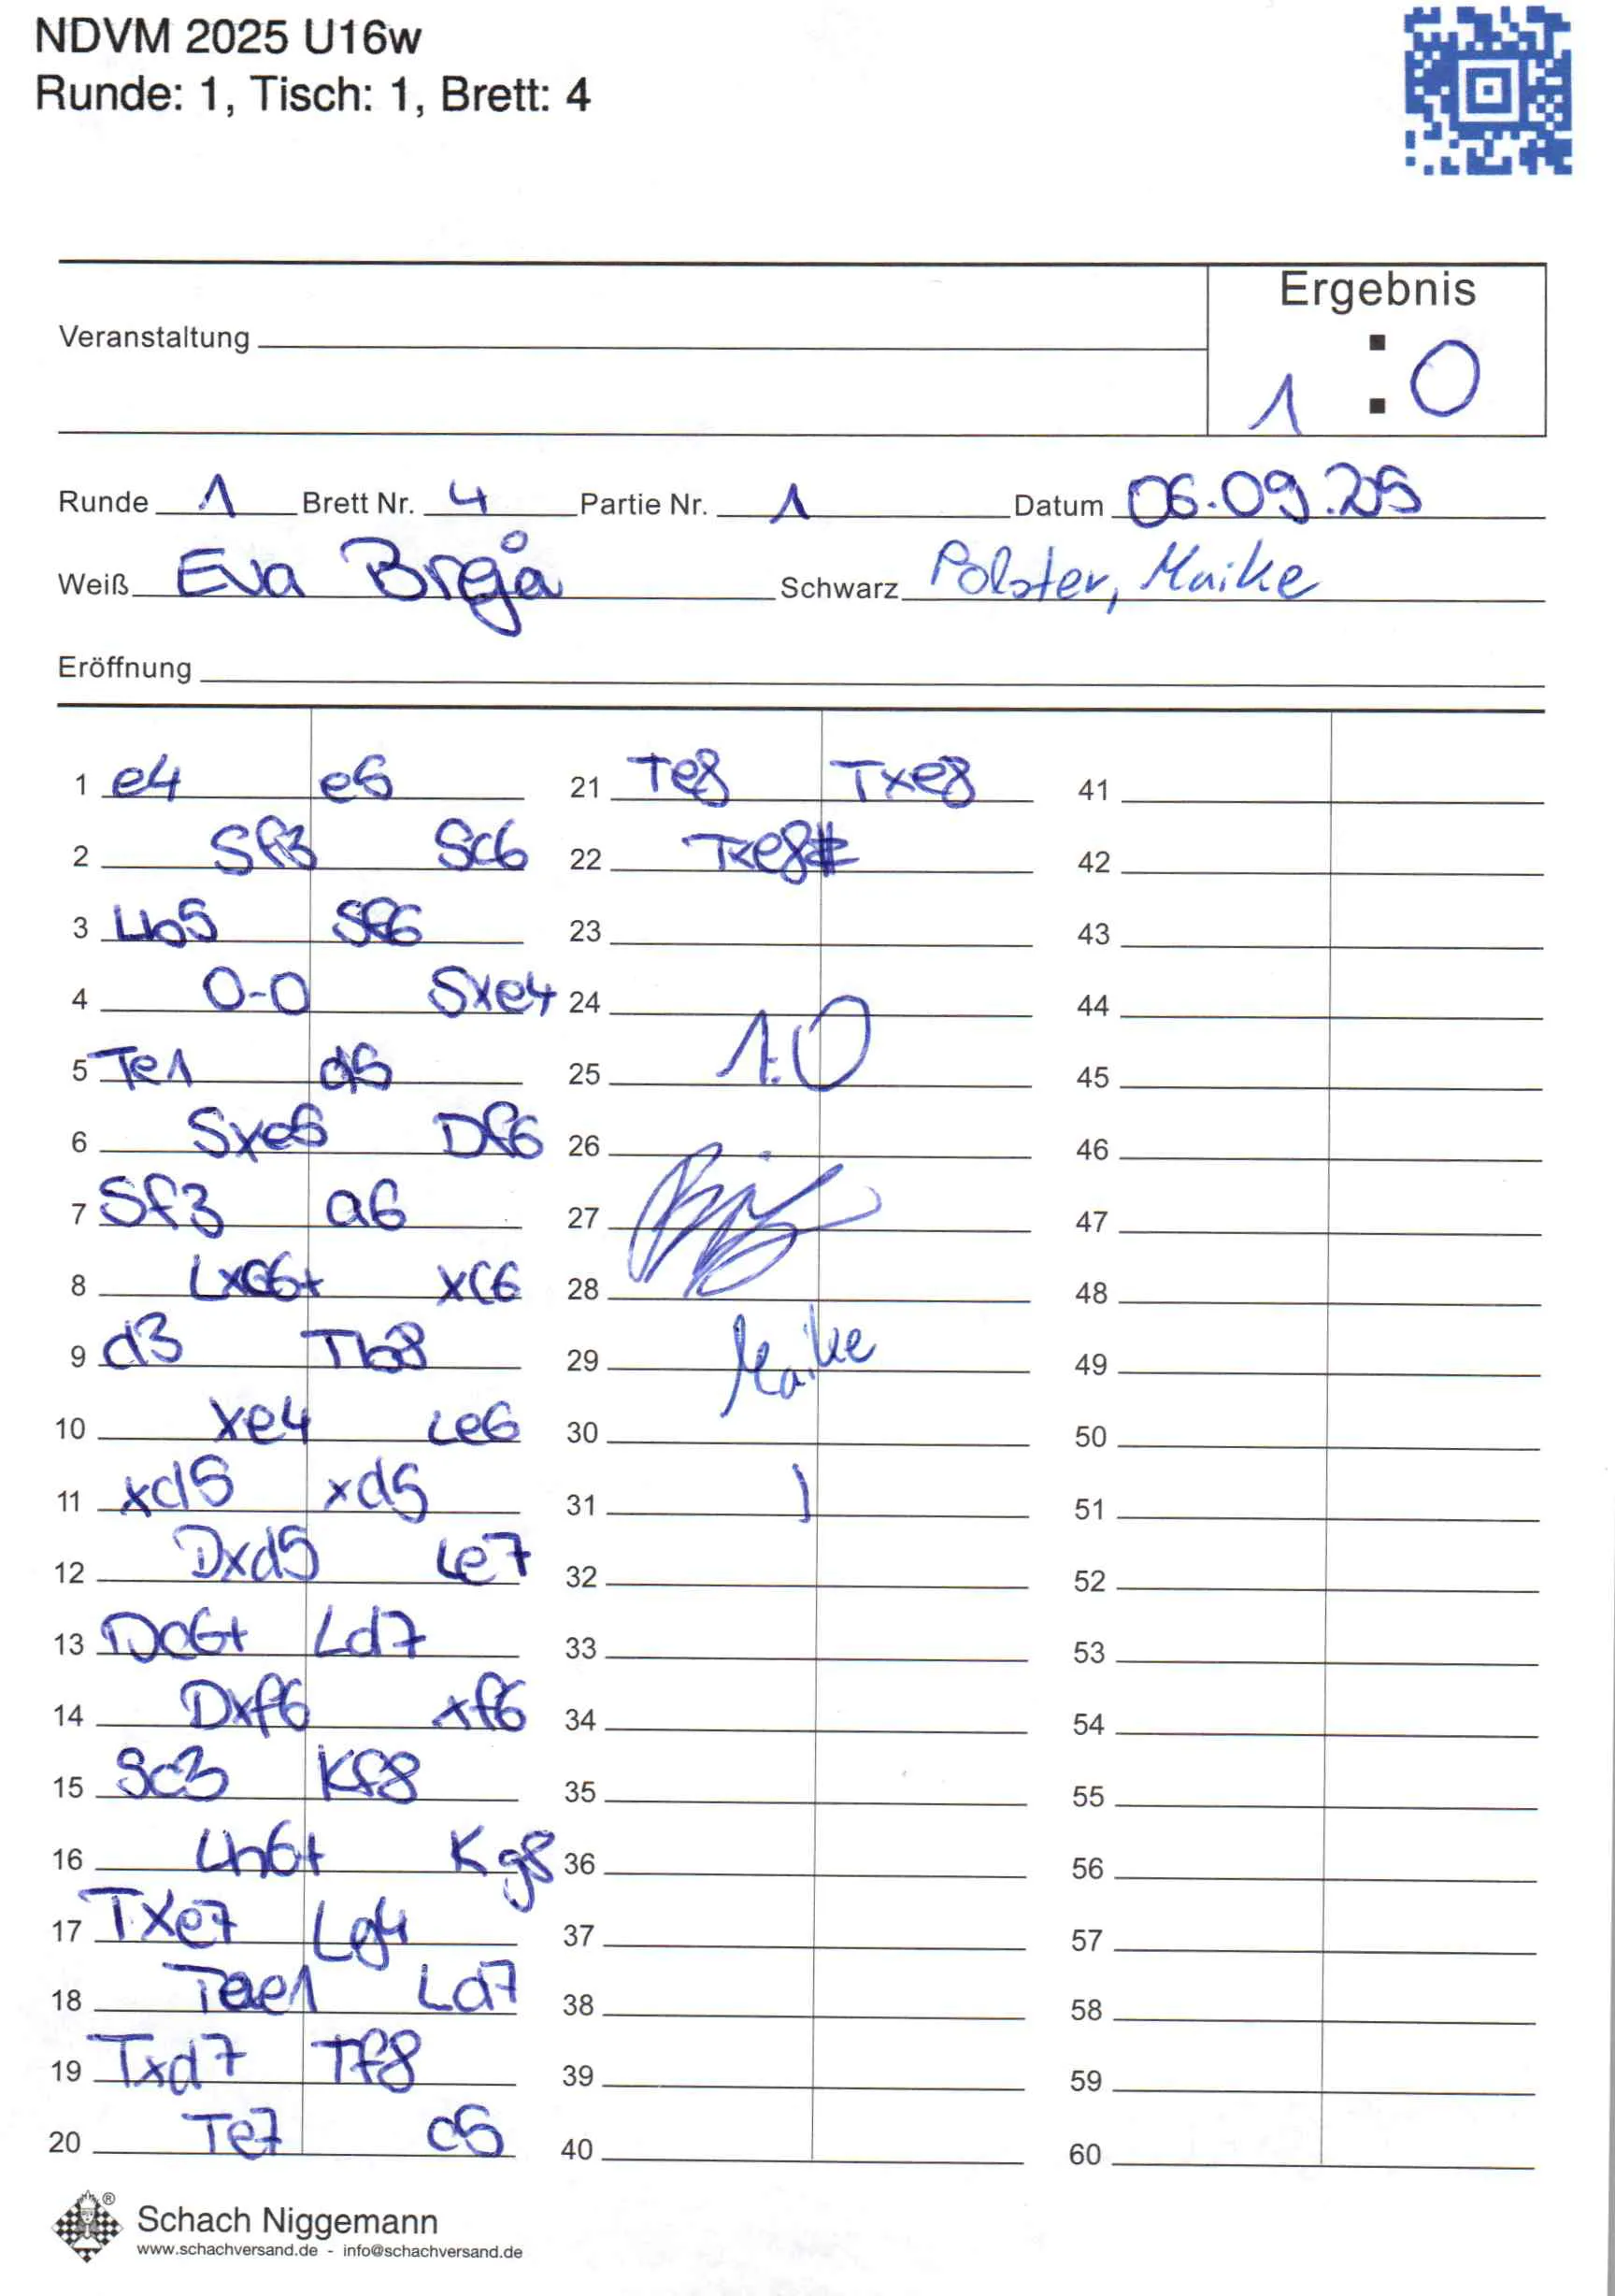 NDVM 2025 U16w
Runde: 1, Tisch: 1, Brett: 4
Ergebnis
Veranstaltung
1 : 0
Runde 1 Brett Nr. 4 Partie Nr. 1 Datum 06.09.25
Weiß Eva Schwarz Polster, Maike
Eröffnung
1 e4 e5 21 Te8 Txe8 41
2 Sf3 Sc6 22 Txe8# 42
3 Lb5 Sf6 23 43
4 0-0 Sxe4 24 44
5 Te1 d5 25 1:0 45
6 Sxe5 Df6 26 46
7 Sf3 a6 27 47
8 Lxc6+ xc6 28 48
9 d3 Tb8 29 Maike 49
10 xe4 Le6 30 50
11 xd5 xd5 31 51
12 Dxd5 Le7 32 52
13 Dc6+ Ld7 33 53
14 Dxf6 xf6 34 54
15 Sc3 Kf8 35 55
16 Lh6+ Kg8 36 56
17 Txe7 Lg4 37 57
18 Tae1 Ld7 38 58
19 Txd7 Tf8 39 59
20 Te7 c5 40 60
® Schach Niggemann
www.schachversand.de - info@schachversand.de